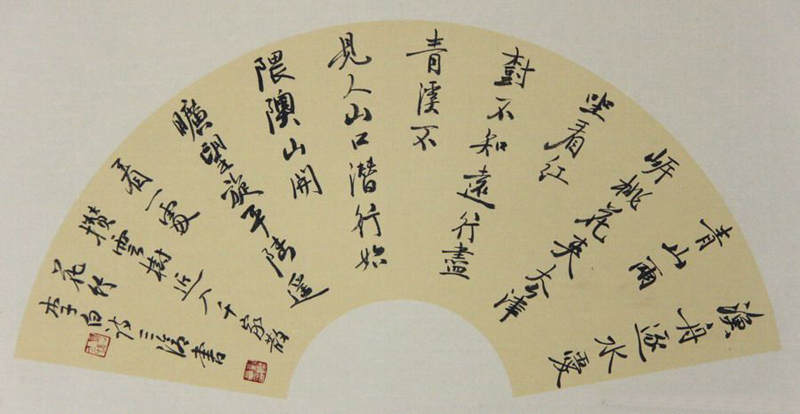 漁舟逐水愛
春山兩
岸桃花夾古津
坐看紅
樹不知遠行盡
青溪不
見人山口潛行始
隈隩山開
曠望旋平陸遥
看一處
攢雲樹近入千家散
花竹
李白诗
書